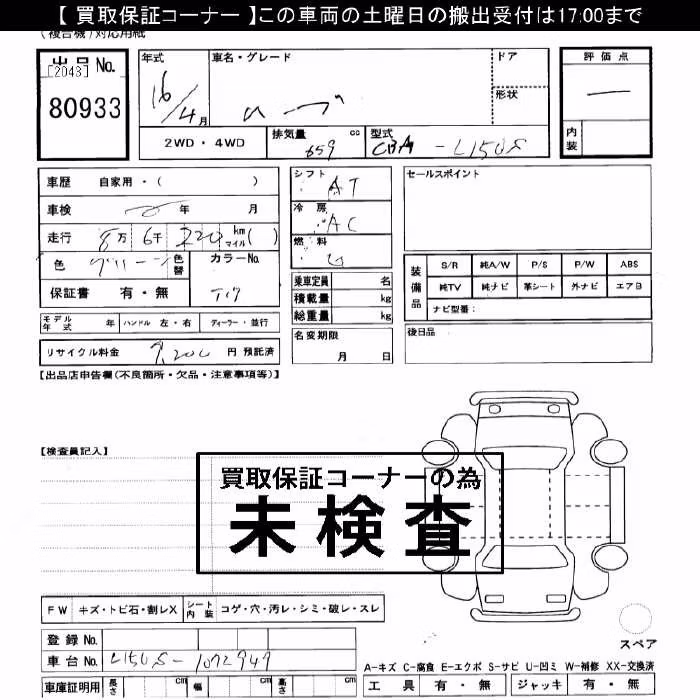 【 買取保証コーナー 】この車両の土曜日の搬出受付は17:00まで
(複合機)対応用紙
出品 No.
[2043]
80933
年式
16/4月
車名・グレード
ムーヴ
ドア
形状
評価点
—
内装
2WD・4WD
排気量 659 cc
型式 CBA-L150S
車歴 自家用・( )
車検 年 月
走行 8万 6千 220 km マイル ( )
色 グリーン 色替
カラーNo.
保証書 有・無
モデル年式 年 ハンドル 左・右 ディーラー・並行
リサイクル料金 9,200 円 預託済
シフト AT
冷房 AC
燃料 G
乗車定員 名
積載量 kg
総重量 kg
名変期限
月 日
セールスポイント
装備品
S/R 純A/W P/S P/W ABS
純TV 純ナビ 革シート 外ナビ エアB
ナビ型番：
後日品
【出品店申告欄(不良箇所・欠品・注意事項等)】
【検査員記入】
買取保証コーナーの為
未検査
FW キズ・トビ石・割レX シート内装 コゲ・穴・汚レ・シミ・破レ・スレ
登録 No.
車台 No. L150S-1072949
車庫証明用 長さ cm 幅 cm 高さ cm
スペア
A-キズ C-腐食 E-エクボ S-サビ U-凹ミ W-補修 XX-交換済
工具 有・無 ジャッキ 有・無